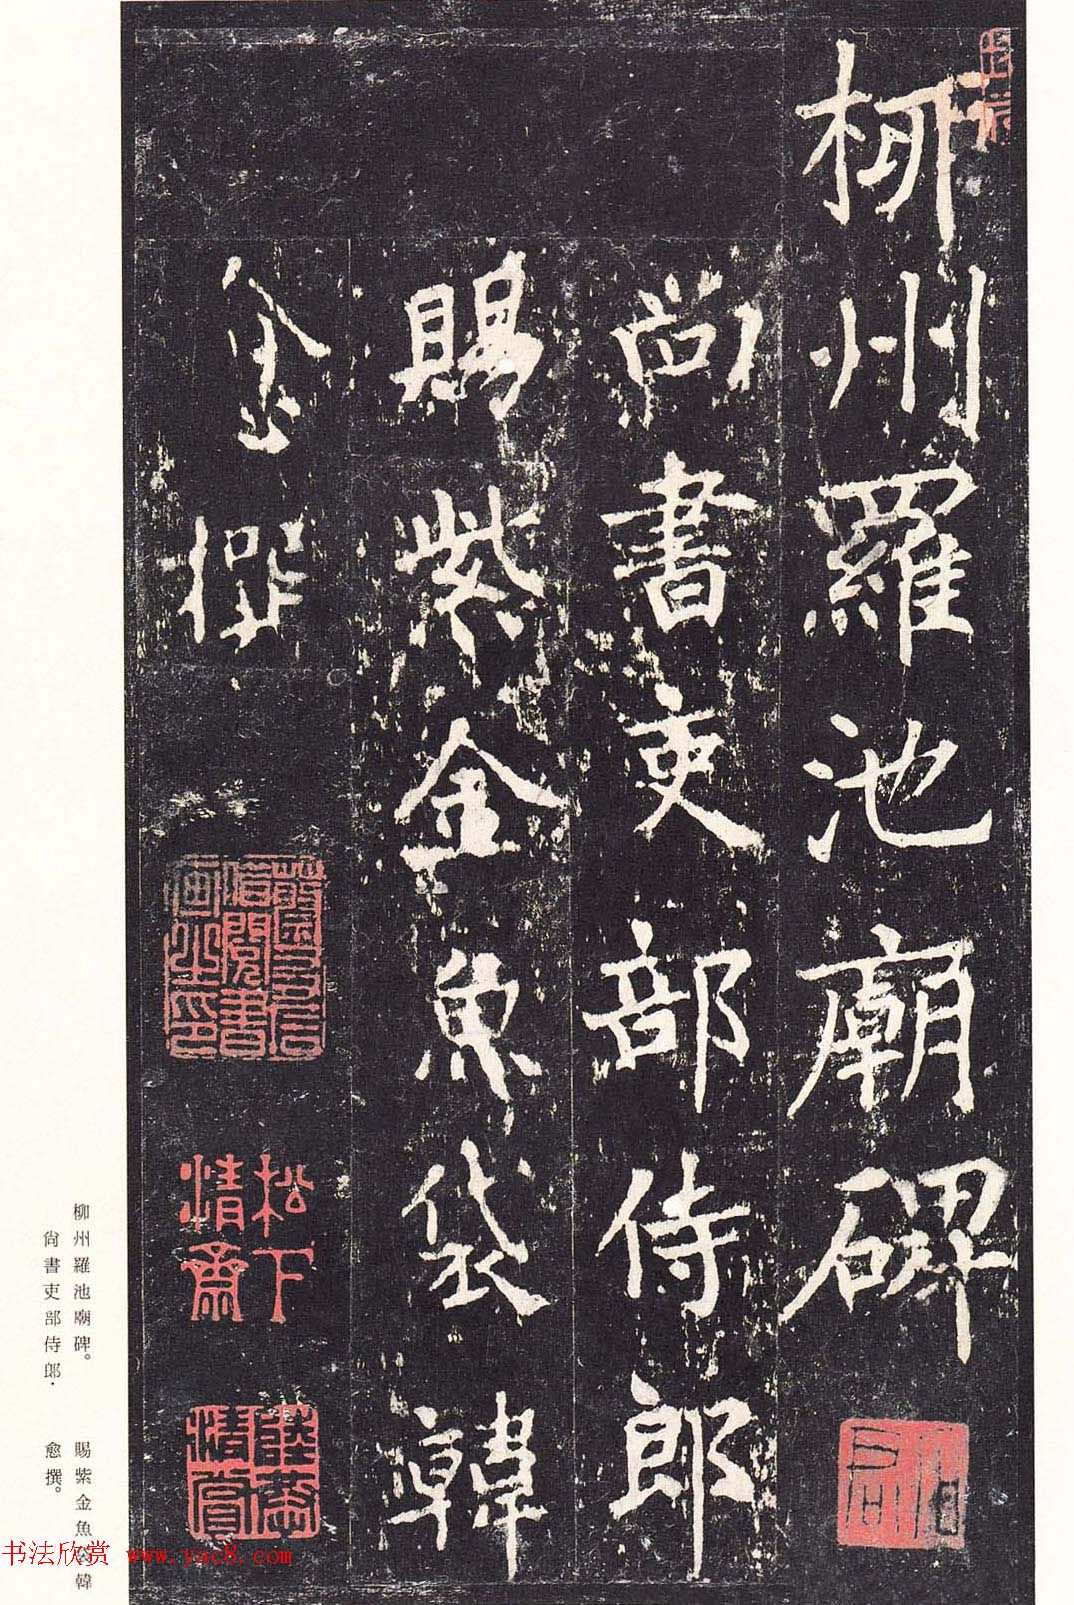 柳州羅池廟碑
尚書吏部侍郎
賜紫金魚袋韓
愈撰
松下
清齋
柳州羅池廟碑。
尙書吏部侍郎·
賜紫金魚袋韓
愈撰。
书法欣赏 www.yac8.com